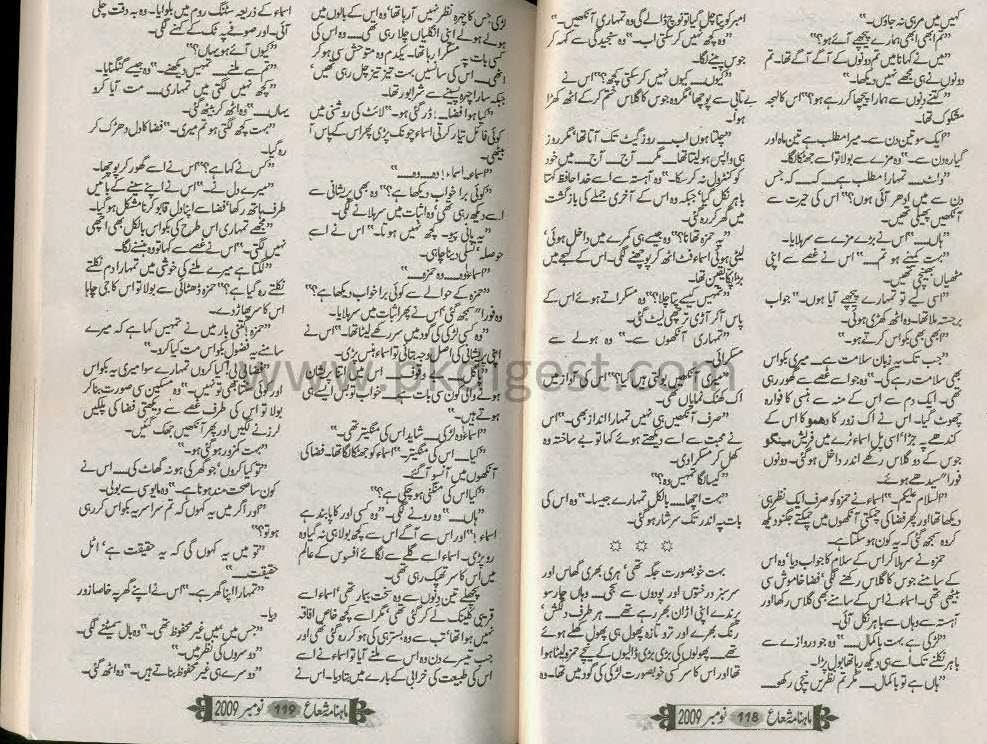 کہیں میں مر ہی نہ جاؤں۔"
"تم ابھی ابھی ہمارے پیچھے آئے ہو؟"
"میں نے کہا نا میں تم دونوں کے آگے آگے تھا۔ تم
دونوں نے ہی مجھے نہیں دیکھا۔"
"کتنے دنوں سے ہمارا پیچھا کر رہے ہو؟" اس کا لہجہ
مشکوک تھا۔
"ایک سو تین دن سے۔ میرا مطلب ہے تین ماہ اور
گیارہ دن سے۔" وہ مزے سے بولا تو اسے جھٹکا لگا۔
"واٹ... تمہارا مطلب ہے ک... کہ جس
دن سے میں ادھر آئی ہوں؟" اس کی حیرت سے
آنکھیں پھیلی تھیں۔
"ہاں...." اس نے بڑے مزے سے سر ہلایا۔
"بہت کمینے ہو تم..." اس نے غصے سے اپنی
مٹھیاں بھینچی تھیں۔
"اسی لیے تو تمہارے پیچھے آیا ہوں۔" جواب
برجستہ ملا تھا۔ وہ اٹھ کھڑی ہوئی۔
"ابھی بھی بکواس کرتے ہو۔"
"جب تک یہ زبان سلامت ہے... میری بکواس
بھی سلامت رہے گی۔" وہ جو اسے غصے سے گھور رہی
تھی۔ ایک دم سے اس کے منہ سے ہنسی کا فوارہ
چھوٹ گیا۔ اس نے اک زور کا دھمو کا اس کے
کندھے پہ جڑا' اسی پل اسماء ٹرے میں فریش مینگو
جوس کے دو گلاس رکھے اندر داخل ہو گئی۔ دونوں
فورا" سیدھے ہوئے۔
"السلام علیکم۔" اسماء نے حمزہ کو صرف ایک نظر ہی
دیکھا تھا اور پھر فضا کی چمکتی آنکھوں میں چمکتے جگنو دیکھ
کر وہ سمجھ گئی کہ یہ کون ہو سکتا ہے۔
حمزہ نے سر ہلا کر اس کے سلام کا جواب دیا' وہ اس
کے سامنے جوس کا گلاس رکھنے لگی' فضا خاموش سی
بیٹھی تھی۔ اسماء نے اس کے سامنے بھی گلاس رکھا اور
آہستہ سے وہاں سے باہر نکل آئی۔
"لڑکی ہے بہت باکمال...." وہ جو دروازے سے
باہر نکلنے تک اسے ہی دیکھ رہا تھا بول پڑا۔
"ہاں ہے تو باکمال... مگر تم نظریں نیچی رکھو....
امبر کو پتا چل گیا تو نوچ ڈالے گی وہ تمہاری آنکھیں۔"
"وہ کچھ نہیں کر سکتی اب۔" وہ سنجیدگی سے کہہ کر
جوس پینے لگا۔
"کیوں... کیوں نہیں کر سکتی کچھ؟" اس نے
بے تابی سے پوچھا' مگر وہ جوس کا گلاس ختم کر کے اٹھ کھڑا
ہوا۔
"چلتا ہوں اب... روز گیٹ تک آتا تھا' مگر روز
ہی واپس ہو لیتا تھا۔ مگر... آج... آج... میں خود
کو کنٹرول نہ کر سکا۔" وہ آہستہ سے اسے خدا حافظ کہتا
باہر نکل گیا' جبکہ وہ اس کے آخری جملے کی بازگشت
میں گھر کر رہ گئی۔
"یہ حمزہ تھا نا؟" وہ جیسے ہی کمرے میں داخل ہوئی'
لیٹی ہوئی اسماء فٹ اٹھ کر پوچھنے لگی۔ اس کے لہجے میں
بڑا پکا یقین تھا۔
"تمہیں کیسے پتا چلا؟" وہ مسکراتے ہوئے اس کے
پاس آ کر آڑی ترچھی لیٹ گئی۔
"تمہاری آنکھوں سے۔" وہ ہولے سے
مسکرائی۔
"میری آنکھیں بولتی ہیں کیا؟" اس کی آواز میں
اک کھنک نمایاں تھی۔
"صرف آنکھیں ہی نہیں تمہارا انداز بھی۔" اس
نے محبت سے اسے دیکھتے ہوئے کہا تو بے ساختہ وہ
کھل کر مسکرا دی۔
"کیسا لگا تمہیں وہ؟"
"بہت اچھا.... بالکل تمہارے جیسا۔" وہ اس کی
بات پہ اندر تک سرشار ہو گئی۔
☼ ☼ ☼
بہت خوبصورت جگہ تھی' ہری بھری گھاس اور
سرسبز درختوں اور پودوں سے بھی۔ جہاں چار سو
پرندے اپنی اڑان بھر رہے تھے... ہر طرف دلکش'
رنگ بھرے اور تر و تازہ پھول ہی پھول کھلے ہوئے
تھے... پھولوں کی بڑی بڑی ڈالیوں کے نیچے حمزہ لیٹا ہوا
تھا اور اس کا سر کسی خوبصورت لڑکی کی گود میں تھا۔ وہ
ماہنامہ شعاع 118 نومبر 2009
لڑکی جس کا چہرہ نظر نہیں آ رہا تھا' وہ اس کے بالوں میں
ہولے ہولے اپنی انگلیاں چلا رہی تھی.... وہ اس کی
کسی بات پہ مسکرا رہا تھا۔ یکدم وہ متوحش سی ہو کر
اٹھی... اس کی سانسیں بہت تیز تیز چل رہی تھیں'
جبکہ سارا چہرہ پسینے سے شرابور تھا۔
"کیا ہوا فضا...! ڈر گئی ہو۔" لائٹ کی روشنی میں
کوئی فائل تیار کرتی اسماء چونک پڑی پھر اس کے پاس آ
بیٹھی۔
"اسماء... اسماء! وہ... وہ...."
"کوئی برا خواب دیکھا ہے؟" وہ بھی پریشانی سے
اسے دیکھ رہی تھی' وہ اثبات میں سر ہلانے لگی۔
"یہ پانی پیو۔ کچھ نہیں ہوتا۔" اس نے اسے
حوصلہ' تسلی دینا چاہی۔
"اسماء! وہ... وہ حمزہ...."
"حمزہ کے حوالے سے کوئی برا خواب دیکھا ہے؟"
وہ فورا" سمجھ گئی' اس نے پھر اثبات میں سر ہلایا۔
"وہ کسی لڑکی کی گود میں سر رکھے لیٹا تھا۔" اس نے
اپنی پریشانی کی اصل وجہ بتائی تو اسماء ہنس پڑی۔
"پاگل... بے وقوف... اس میں اتنا پریشان
ہونے والی کون سی بات ہے... خواب تو بس ایسے ہی
ہوتے ہیں۔"
"اسماء! وہ لڑکی... شاید اس کی منگیتر تھی۔"
"کیا... اس کی منگیتر۔" اسماء کو جھٹکا لگا تھا۔ فضا کی
آنکھوں میں آنسو آ گئے۔
"کیا اس کی منگنی ہو چکی ہے؟"
"ہاں...." وہ رونے لگی۔ "وہ کسی اور کا پابند ہے
اسماء!" اور اس سے آگے اس سے کچھ بولا ہی نہ گیا وہ
رو پڑی۔ اسماء اسے گلے سے لگائے افسوس کے عالم
میں اس کا سر تھپک رہی تھی۔
پچھلے تین دنوں سے وہ سخت بیمار تھی' اسماء اسے
قریبی کلینک لے کر گئی تھی' مگر اسے کچھ خاص افاقہ
نہیں ہوا تھا' تب سے وہ بستر ہی کی ہو کر رہ گئی تھی اور
جب تیسرے دن وہ اس سے ملنے آیا تو اسماء نے اسے
اس کی طبیعت کی خرابی کے بارے میں بتا دیا۔ اس نے
اسماء کے ذریعہ سٹنگ روم میں بلوایا۔ وہ بہ دقت چلی
آئی۔ اور صوفے پہ ٹک کے کہنے لگی۔
"کیوں آئے ہو یہاں؟"
"تم سے ملنے... تمہیں دیکھنے۔" وہ جیسے گنگنایا۔
"کچھ نہیں لگتی میں تمہاری... مت آیا کرو
یہاں...." وہ اٹھ کر بیٹھ گئی۔
"بہت کچھ لگتی ہو تم میری۔" فضا کا دل دھڑک کر
رہ گیا۔
"کس نے کہا ہے؟" اس نے اسے گھور کر پوچھا۔
"میرے دل نے۔" اس نے اپنے سینے کے بائیں
طرف ہاتھ رکھا' فضا سے اپنا دل قابو کرنا مشکل ہو گیا۔
"مجھے تمہاری اس طرح کی بکواس بالکل بھی اچھی
نہیں لگتی۔" اس نے غصے سے کہا تو وہ ہنسنے لگا۔
"لگتا ہے میرے ملنے کی خوشی میں تمہارا دم نکلتے
نکلتے رہ گیا ہے؟" حمزہ ڈھٹائی سے بولا تو اس کا جی چاہا
اس کا سر پھاڑ دے۔
"حمزہ! کتنی بار میں نے تمہیں کہا ہے کہ میرے
سامنے یہ فضول بکواس مت کیا کرو۔"
"فضا لی لی! کیا کروں تمہارے سوا میری یہ بکواس
اور کوئی سنتا بھی تو نہیں۔" وہ مسکین سی صورت بنا کر
بولا تو اس کی طرف غصے سے دیکھتی فضا کی پلکیں
لرزنے لگیں اور پھر آنکھیں جھک گئیں۔
"بہت کمزور ہو گئی ہو۔"
"تو کیا کروں' جو گھر کی ہو نہ گھاٹ کی... اس نے
کون سا صحت مند ہونا ہے۔" وہ مایوسی سے بولی۔
"اور اگر میں یہ کہوں کہ تم سراسر یہ بکواس کر رہی
ہو تو؟"
"تو میں یہ کہوں گی کہ یہ حقیقت ہے' اٹل
حقیقت...."
"تمہارا اپنا گھر ہے۔" اس نے اپنے گھر پہ خاصا زور
دیا۔
"جس میں' میں غیر محفوظ تھی۔" وہ بال سمیٹنے لگی۔
"دوسروں کی نظر میں۔"
"دوسرے ہی غیر محفوظ بناتے ہیں۔" وہ اٹھ گئی۔
ماہنامہ شعاع 119 نومبر 2009
www.pkdigest.com